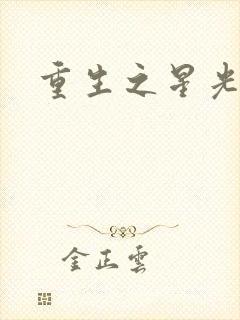 重生之星光
金正雲